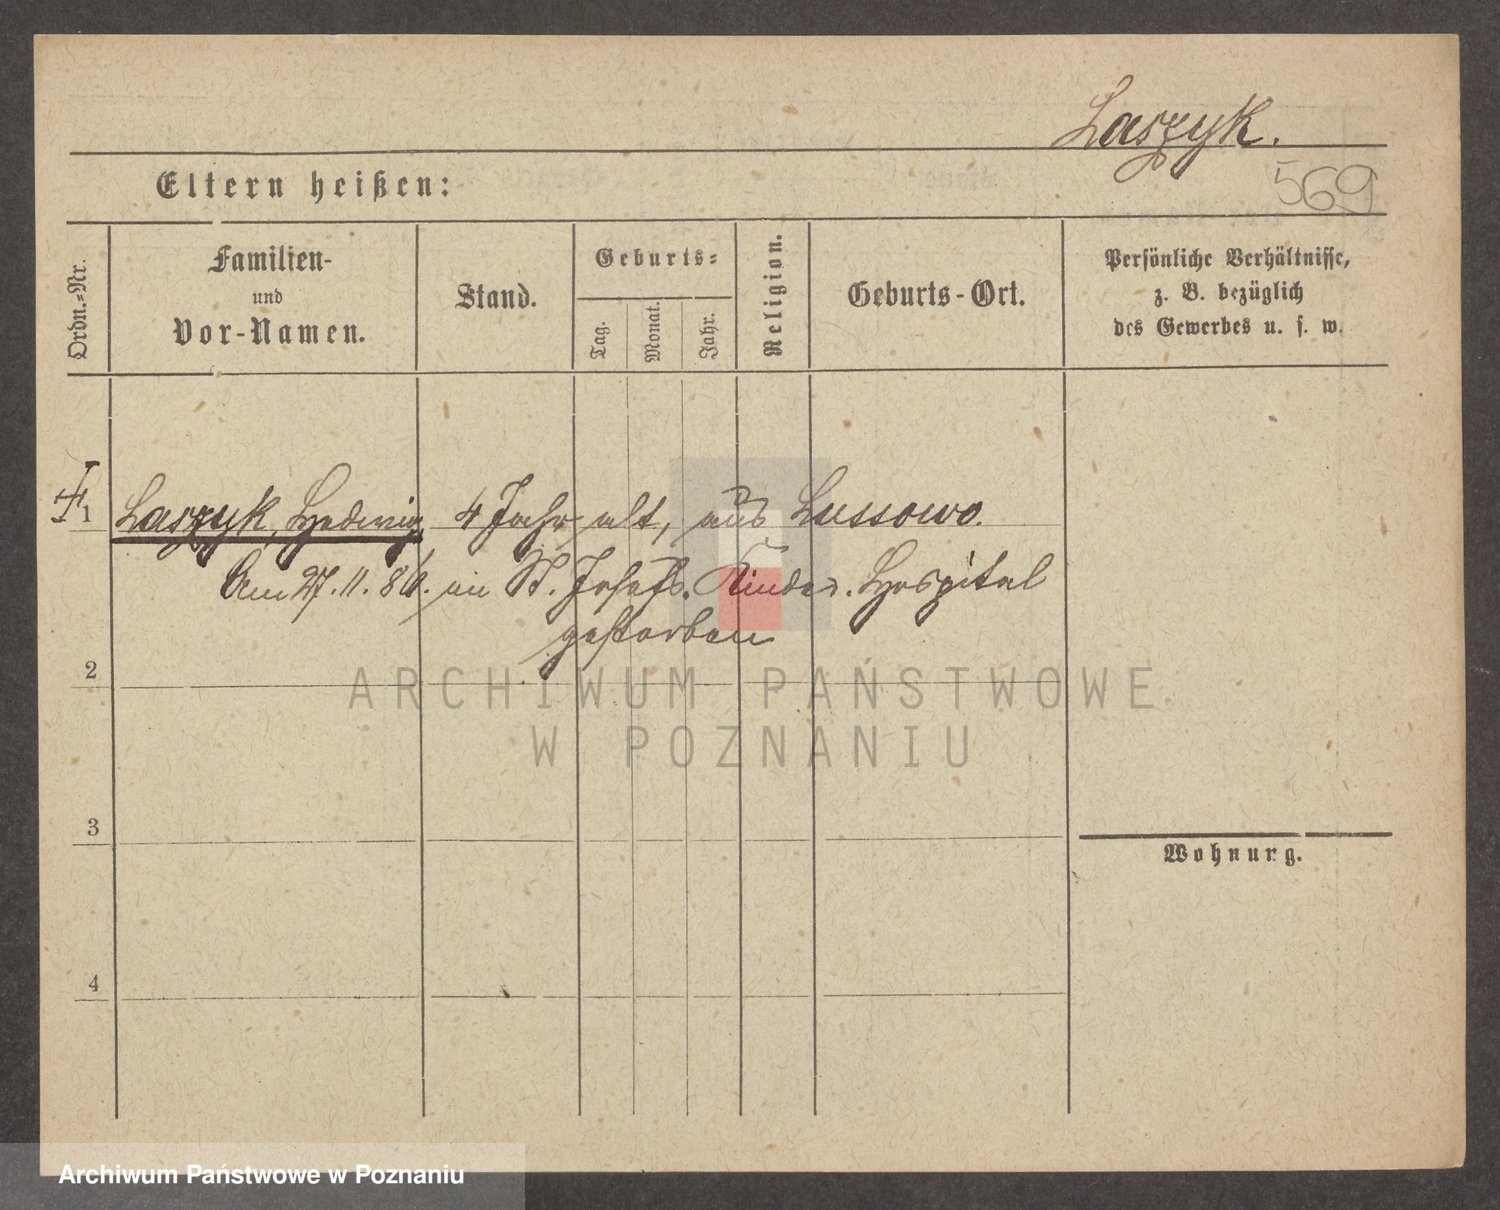 Laszyk.
569
Eltern heißen:
Ordn.=Nr.
Familien-
und
Vor-Namen.
Stand.
Geburts=
Tag.
Monat.
Jahr.
Religion.
Geburts-Ort.
Persönliche Verhältnisse,
z. B. bezüglich
des Gewerbes u. s. w.
1 Laszyk, Hedwig, 4 Jahr alt, aus Lussowo.
Am 27.11.86. im St. Josefs. Kinder. Hospital
gestorben
2
ARCHIWUM PAŃSTWOWE
W POZNANIU
3
Wohnung.
4
Archiwum Państwowe w Poznaniu